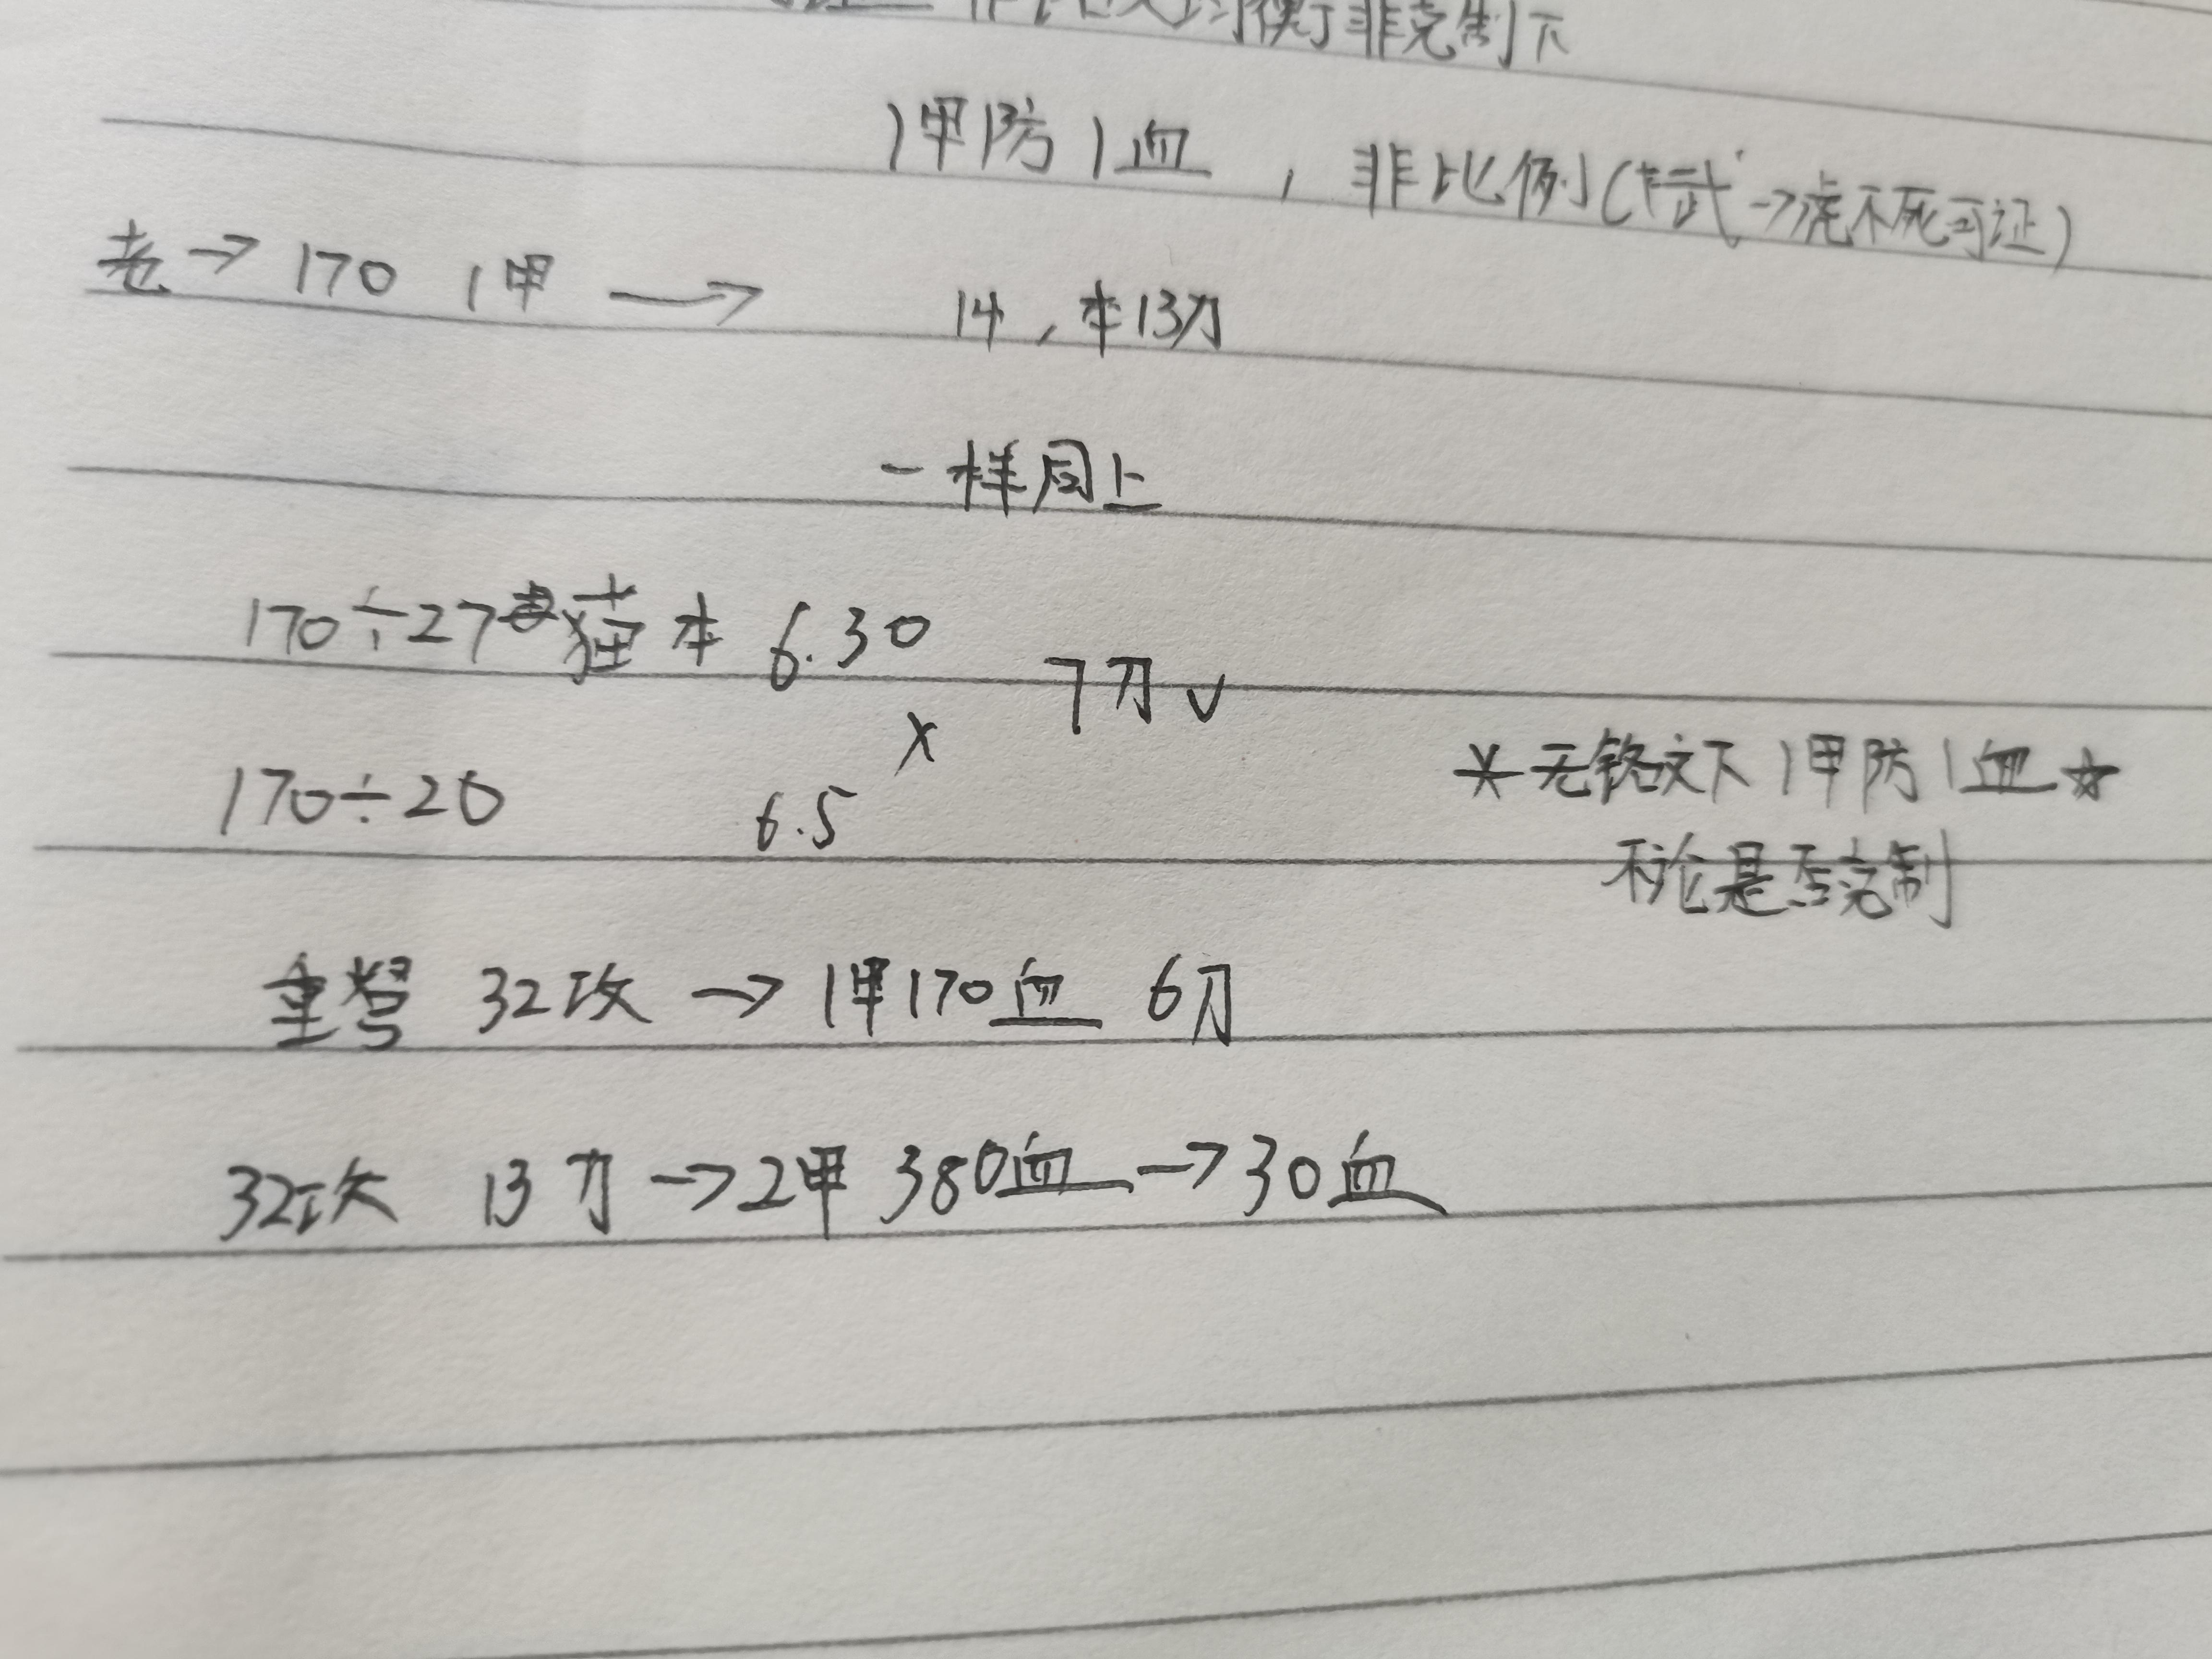 均衡非克制下
1甲防1血，非比例(武→虎不死可证)
老→170 1甲→ 14，本13刀
一样同上
170÷27 猫本 6.30
7刀√
×
170÷26 6.5
*无铭文下1甲防1血☆
不论是否克制
重弩 32攻→1甲170血 6刀
32攻 13刀→2甲380血→30血